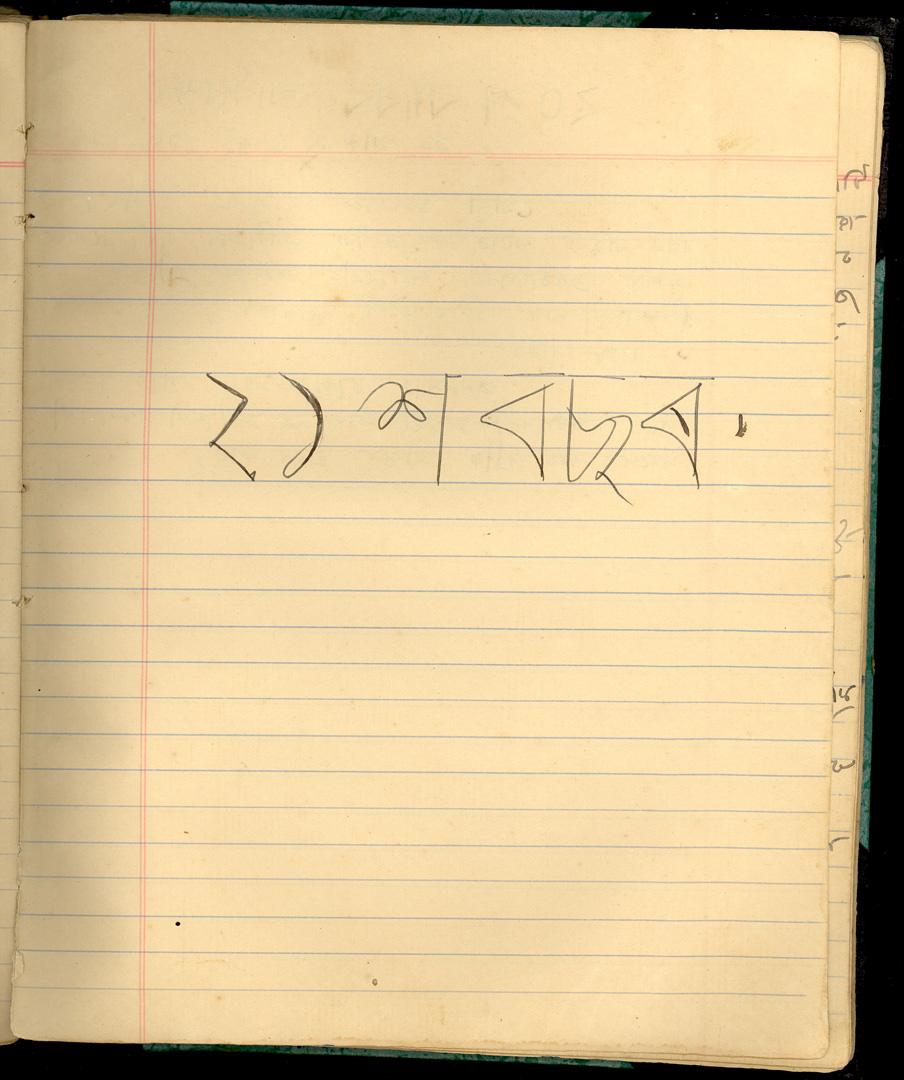 ২১ শ বছৰ.